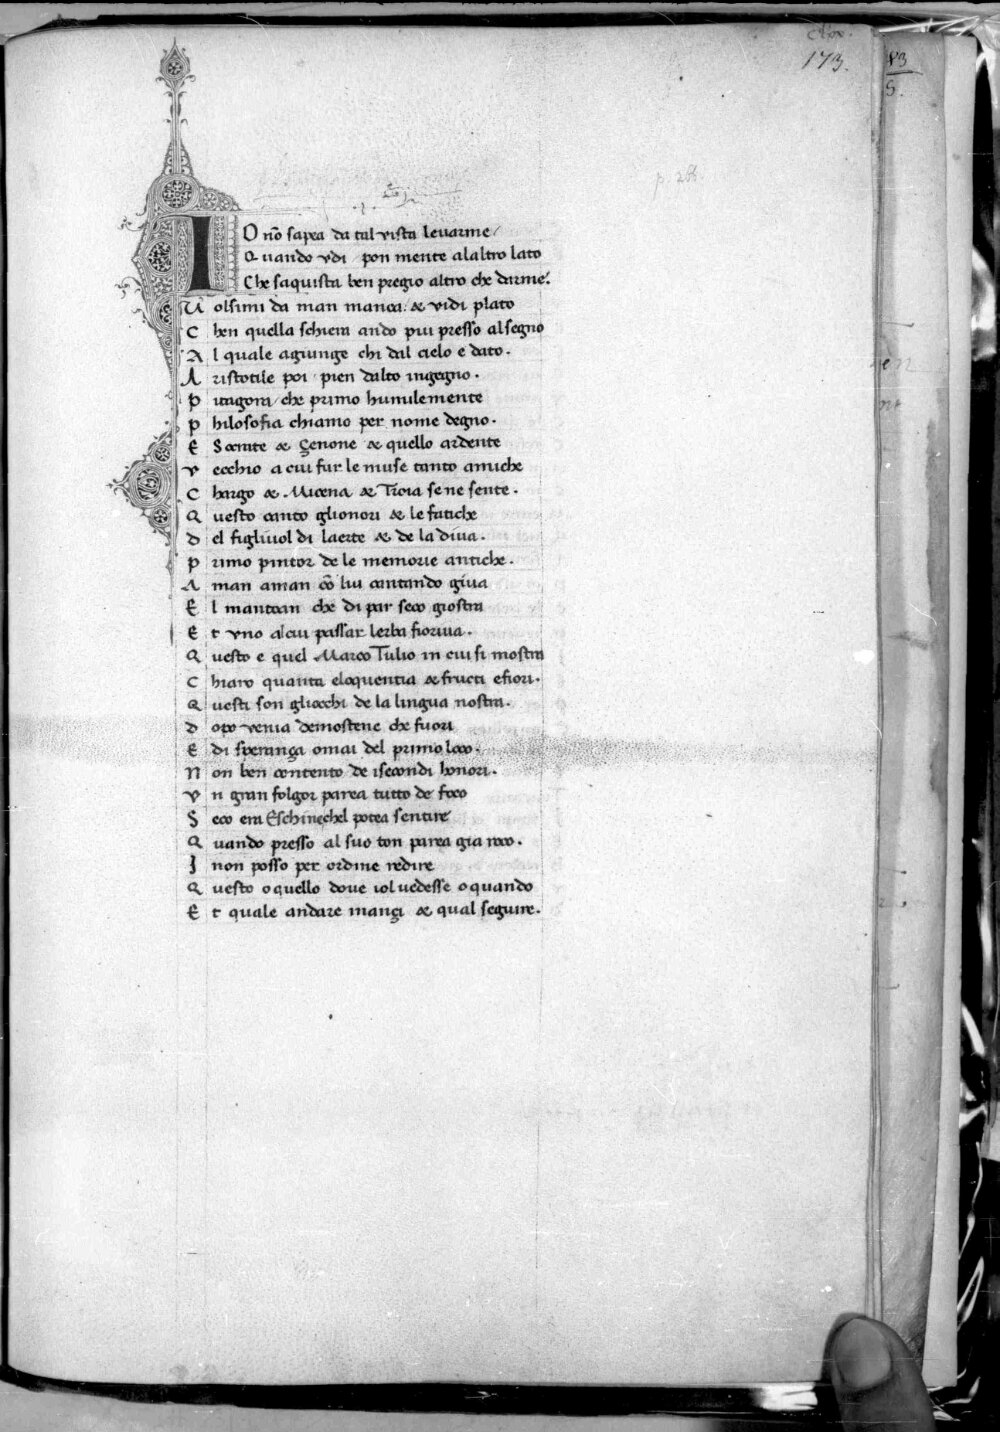 clxx.
173.
p. 286.
IO nō sapea da tal vista levarme
Quando vdi pon mente alaltro lato
Che saquista ben pregio altro che darme.
Uolsimi da man manca & vidi plato
Chen quella schiera ando piu presso al segno
Al quale agiunge chi dal cielo e dato.
Aristotile poi pien dalto ingegno.
Pitagora che primo humilemente
Philosofia chiamo per nome degno.
E Socrate & Çenone & quello ardente
Vecchio a cui fur le muse tanto amiche
Chargo & Micena & Troia se ne sente.
Questo canto glionori & le fatiche
del figliuol di laerte & de la diua.
Primo pintor de le memorie antiche.
Aman aman cō lui cantando giua
El mantoan che di par seco giostra
Et vno al cui passar lerba fioriua.
Questo e quel Marco Tulio in cui si mostra
Chiaro quanta eloquentia & fructi efiori.
Questi son gliocchi de la lingua nostra.
dopo venia demostene che fuori
E di sperança omai del primo loco.
Non ben contento de isecondi honori.
Vn gran folgor parea tutto de foco
Seco era Eschine chel potea sentire
Quando presso al suo ton parea gia roco.
I non posso per ordine redire
Questo o quello doue iol uedesse o quando
Et quale andare inançi & qual seguire.